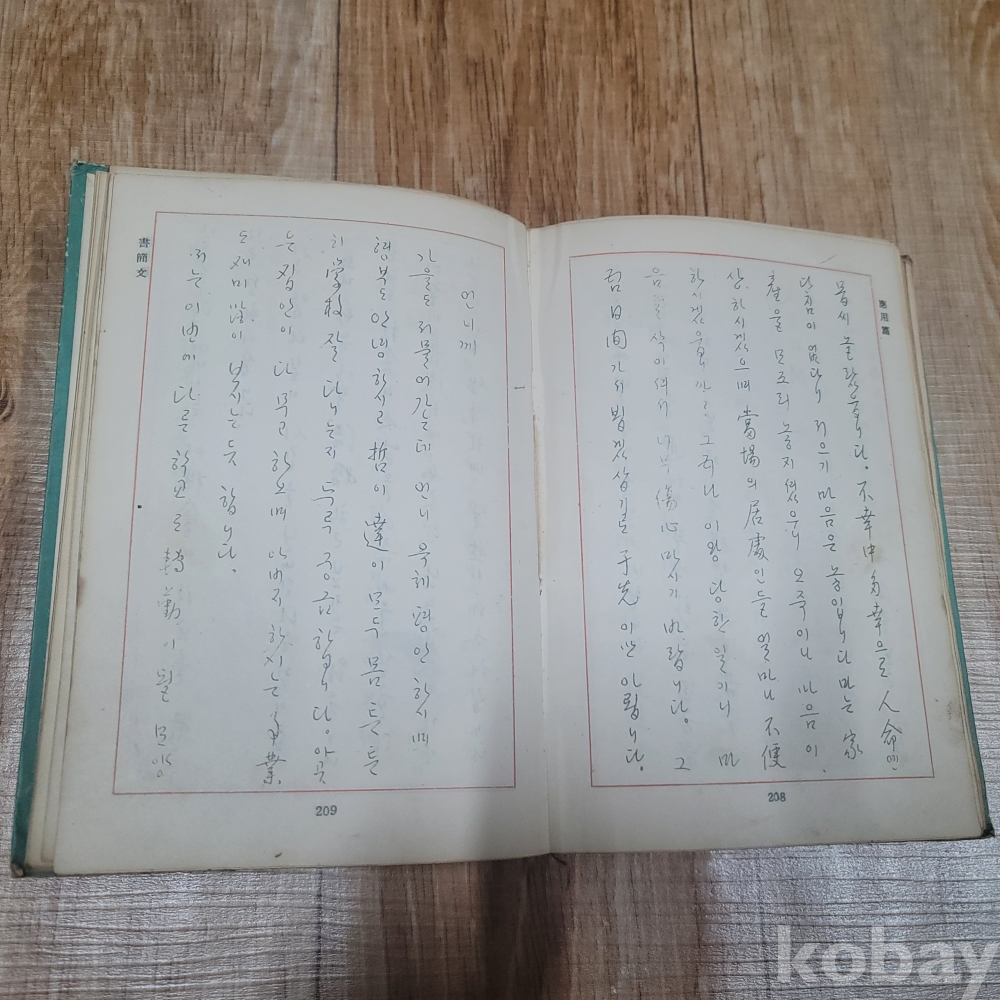 應用篇
몹씨 놀랐읍니다. 不幸中多幸으로 人命에
다침이 없다니 저으기 마음은 놓입니다마는 家
産을 모조리 놓지셨으니 오죽이나 마음이
상하시겠으며 當場의 居處인들 얼마나 不便
하시겠읍니까. 그러나 이왕 당한 일기니 마
음을 삭이셔서 너무 傷心 마시기 바랍니다. 그
럼 日間 가서 뵙겠삽기로 于先 이만 아룁니다.
208
書簡文
一
언니께
가을도 저물어가는데 언니 옥체 평안하시며
형부도 안녕하시고 哲이 達이 모두 몸 튼튼
히 學校 잘 다니는지 무척 궁금합니다. 이곳
은 집안이 다 무고하오며 아버지 하시는 事業
도 재미 많이 보시는 듯 합니다.
저는 이번에 다른 학교로 轉勤이 될 모양
209
kobay